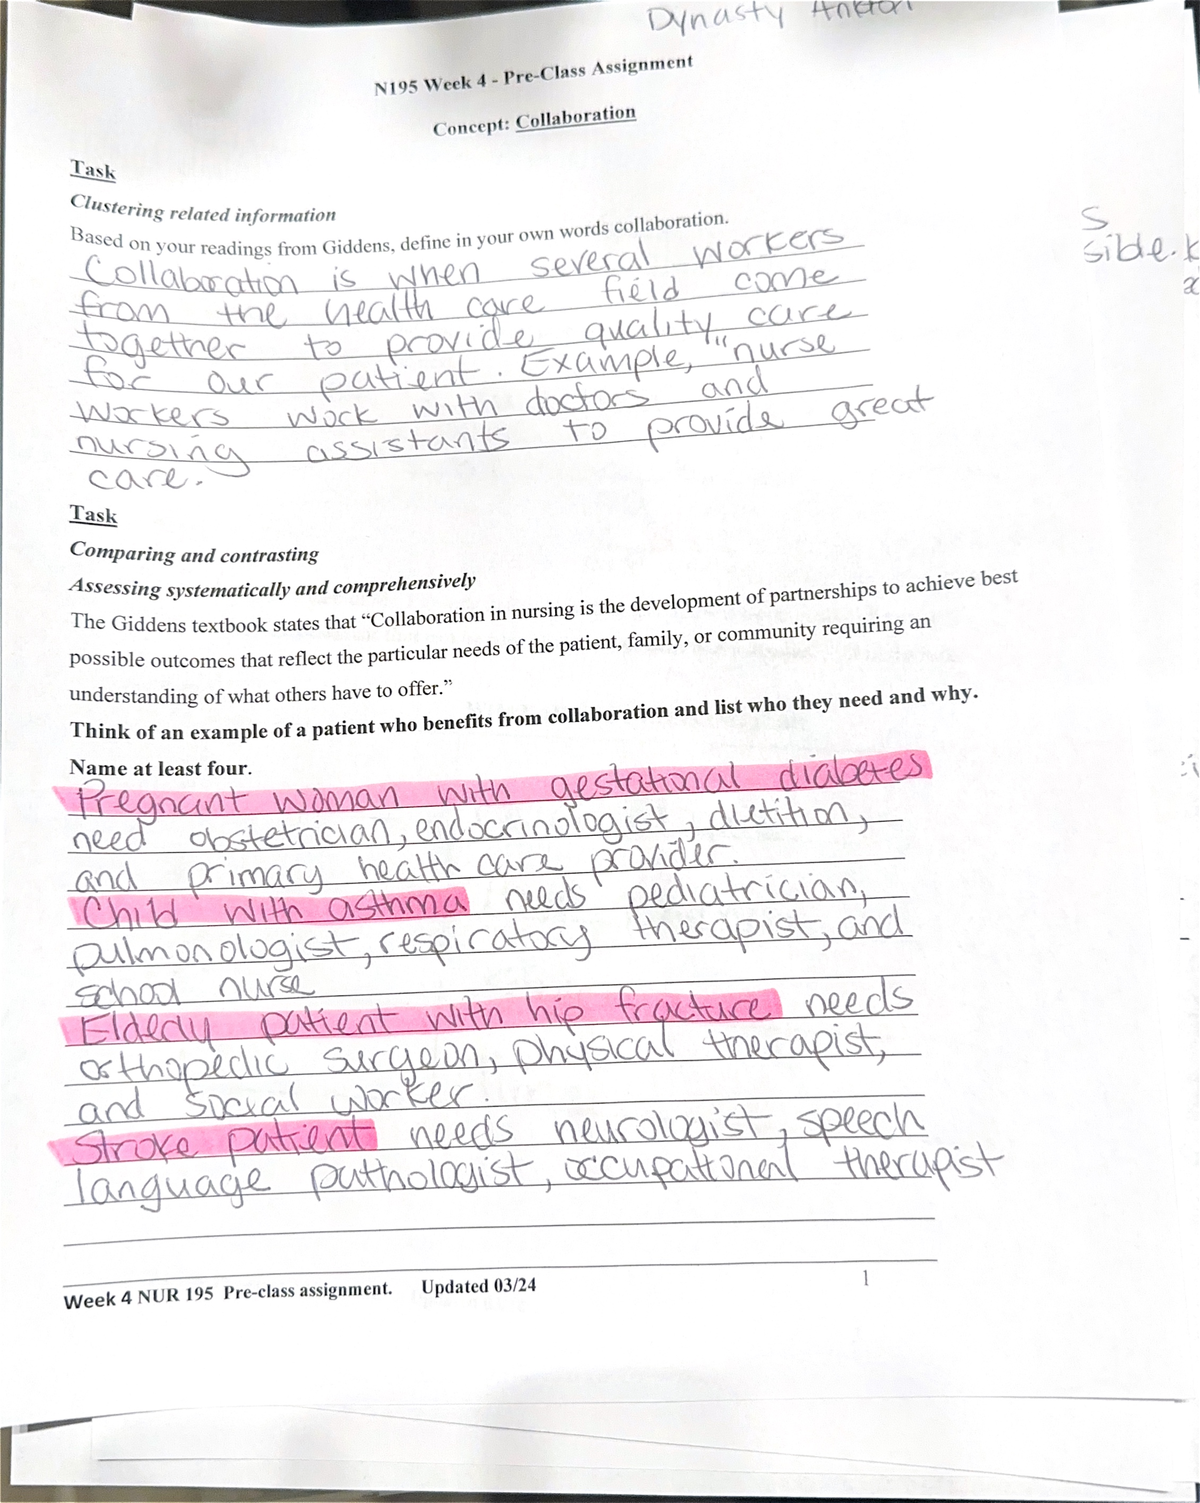 Dynasty
N195 Week 4 - Pre-Class Assignment
Concept: Collaboration
Task
Clustering related information
Based on your readings from Giddens, define in your own words collaboration.
Collaboration is when several workers
from the health care field come
together to provide quality care
for our patient. Example, "nurse
workers work with doctors and
nursing assistants to provide great
care.
S
sible.
Task
Comparing and contrasting
Assessing systematically and comprehensively
The Giddens textbook states that “Collaboration in nursing is the development of partnerships to achieve best
possible outcomes that reflect the particular needs of the patient, family, or community requiring an
understanding of what others have to offer.”
Think of an example of a patient who benefits from collaboration and list who they need and why.
Name at least four.
Pregnant woman with gestational diabetes
need obstetrician, endocrinologist, dietition,
and primary health care provider.
Child with asthma needs pediatrician,
pulmonologist, respiratory therapist, and
school nurse
Elderly patient with hip fracture needs
orthopedic surgeon, physical therapist,
and social worker.
Stroke patient needs neurologist, speech
language pathologist, occupational therapist
Week 4 NUR 195 Pre-class assignment. Updated 03/24
1